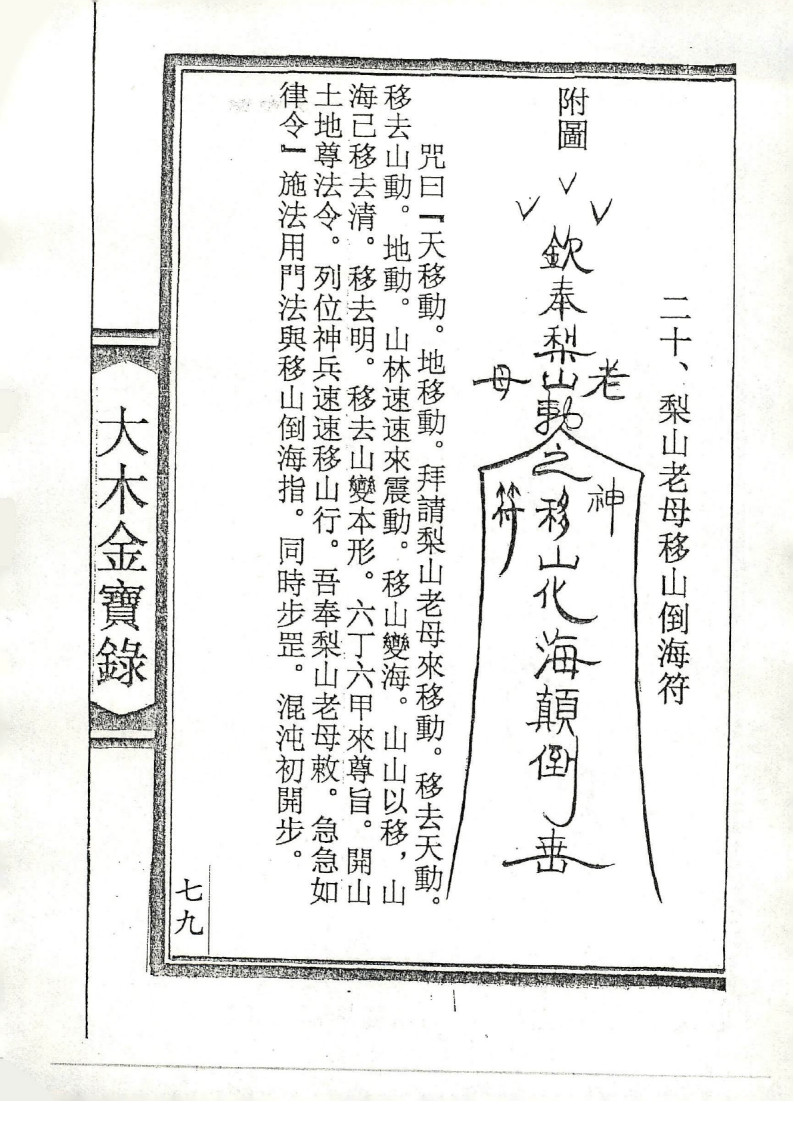 二十、梨山老母移山倒海符
附圖
欽奉梨山
老
母
勅令之移山化海顛倒
神
符
咒曰『天移動。地移動。拜請梨山老母來移動。移去天動。
移去山動。地動。山林速速來震動。移山變海。山山以移，山
海已移去清。移去明。移去山變本形。六丁六甲來尊旨。開山
土地尊法令。列位神兵速速移山行。吾奉梨山老母敕。急急如
律令』施法用門法與移山倒海指。同時步罡。混沌初開步。
大木金寶錄
七九